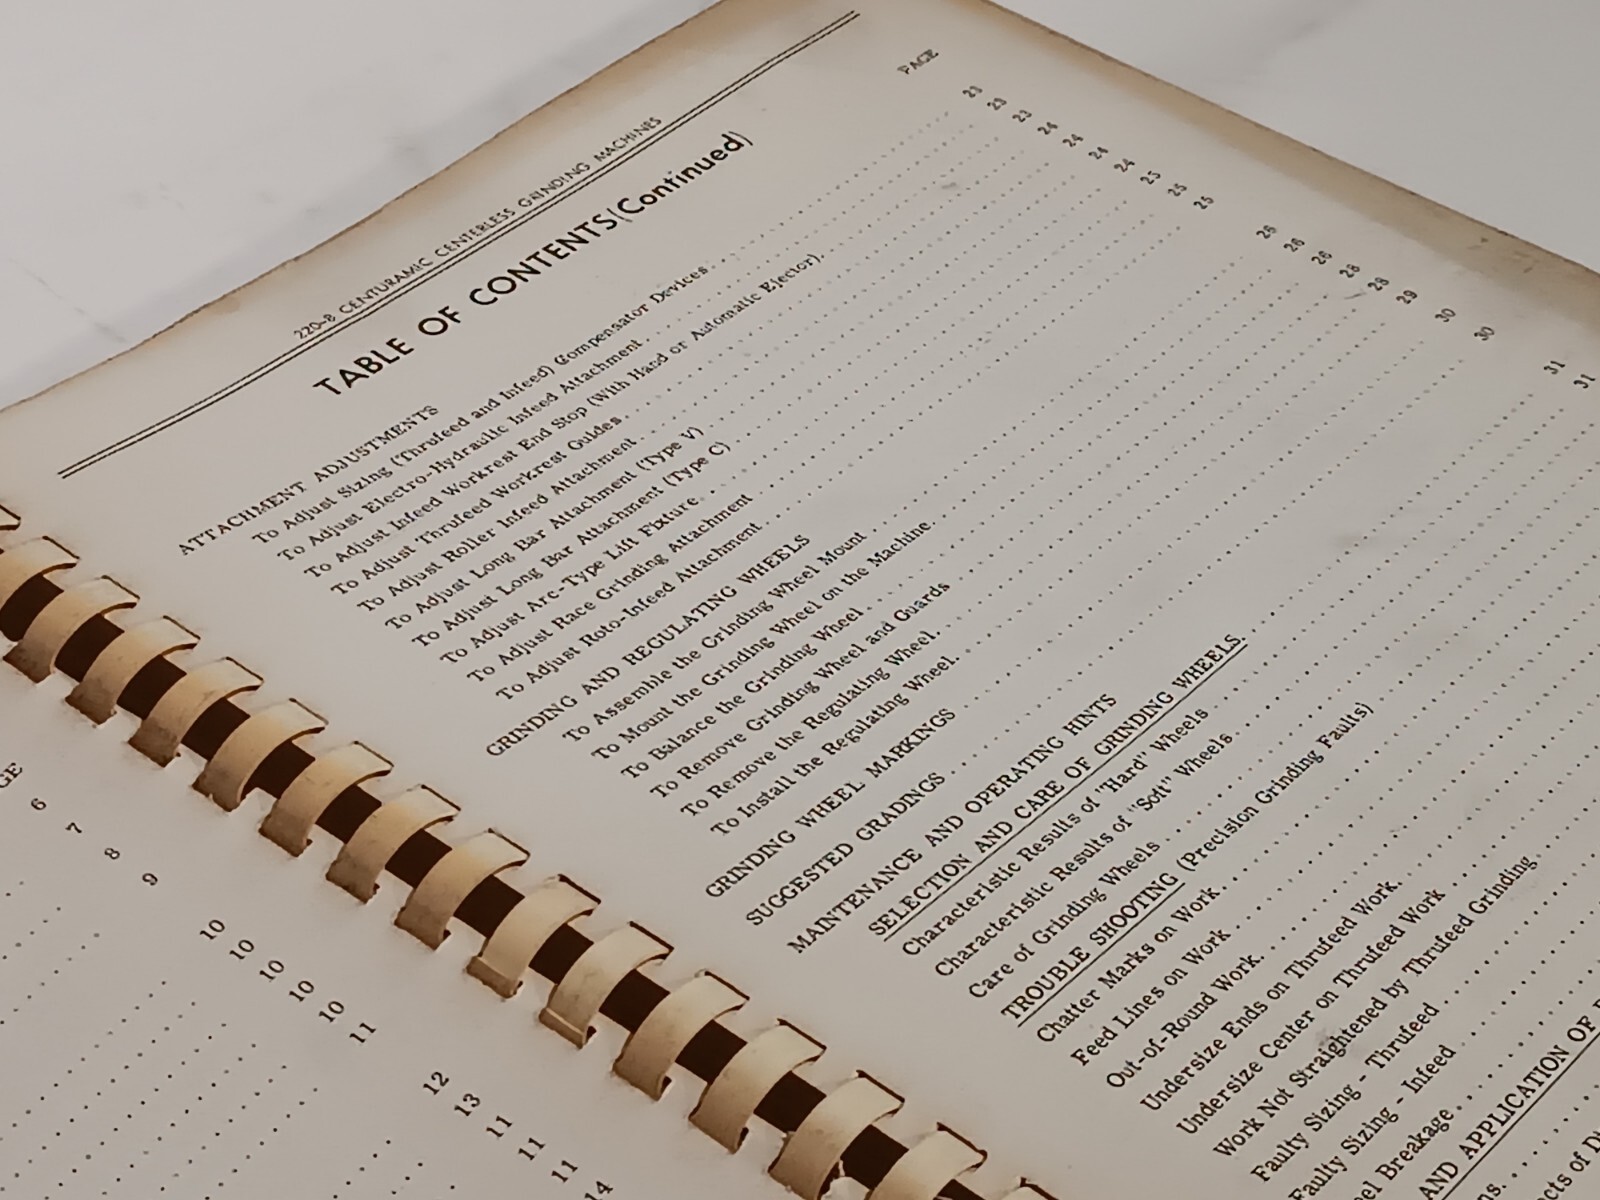 220-8 CENTURAMIC CENTERLESS GRINDING MACHINES
TABLE OF CONTENTS (Continued)
PAGE
ATTACHMENT ADJUSTMENTS
To Adjust Sizing (Thrufeed and Infeed) Compensator Devices 23
To Adjust Electro-Hydraulic Infeed Attachment 23
To Adjust Infeed Workrest End Stop (With Hand or Automatic Ejector) 23
To Adjust Thrufeed Workrest Guides 24
To Adjust Roller Infeed Attachment 24
To Adjust Long Bar Attachment (Type V) 24
To Adjust Long Bar Attachment (Type C) 24
To Adjust Arc-Type Lift Fixture 25
To Adjust Race Grinding Attachment 25
To Adjust Roto-Infeed Attachment 25
GRINDING AND REGULATING WHEELS
To Assemble the Grinding Wheel Mount 26
To Mount the Grinding Wheel on the Machine 26
To Balance the Grinding Wheel 26
To Remove Grinding Wheel and Guards 28
To Remove the Regulating Wheel 28
To Install the Regulating Wheel 29
GRINDING WHEEL MARKINGS 30
SUGGESTED GRADINGS 30
MAINTENANCE AND OPERATING HINTS
SELECTION AND CARE OF GRINDING WHEELS. 31
Characteristic Results of "Hard" Wheels 31
Characteristic Results of "Soft" Wheels
Care of Grinding Wheels
TROUBLE SHOOTING (Precision Grinding Faults)
Chatter Marks on Work
Feed Lines on Work
Out-of-Round Work
Undersize Ends on Thrufeed Work
Undersize Center on Thrufeed Work
Work Not Straightened by Thrufeed Grinding
Faulty Sizing - Thrufeed
Faulty Sizing - Infeed
Breakage
AND APPLICATION OF
6
7
8
9
10
10
10
10
10
11
12
13
11
11
11
14